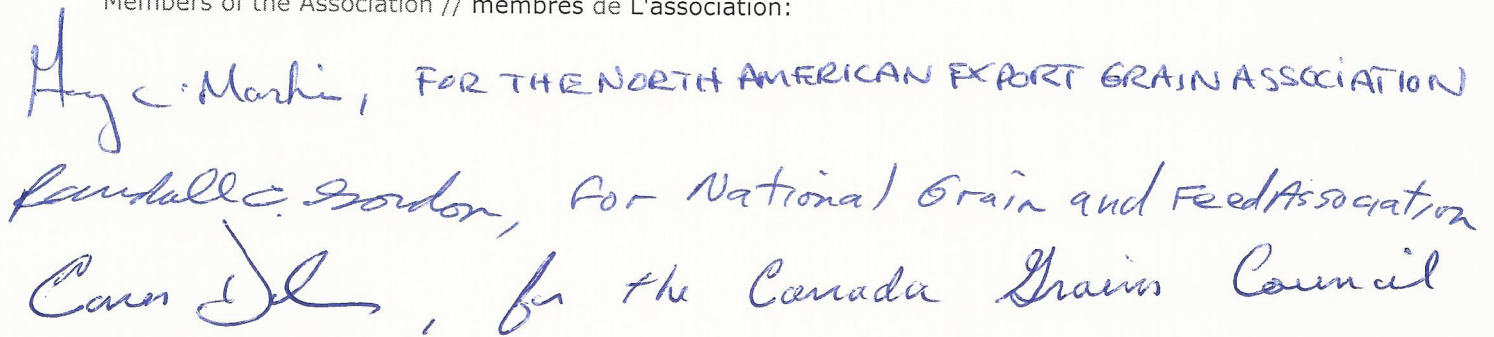 Members of the Association // membres de L'association:
Gary C. Martin, FOR THE NORTH AMERICAN EXPORT GRAIN ASSOCIATION
Randall C. Gordon, For National Grain and Feed Association
, for the Canada Grains Council